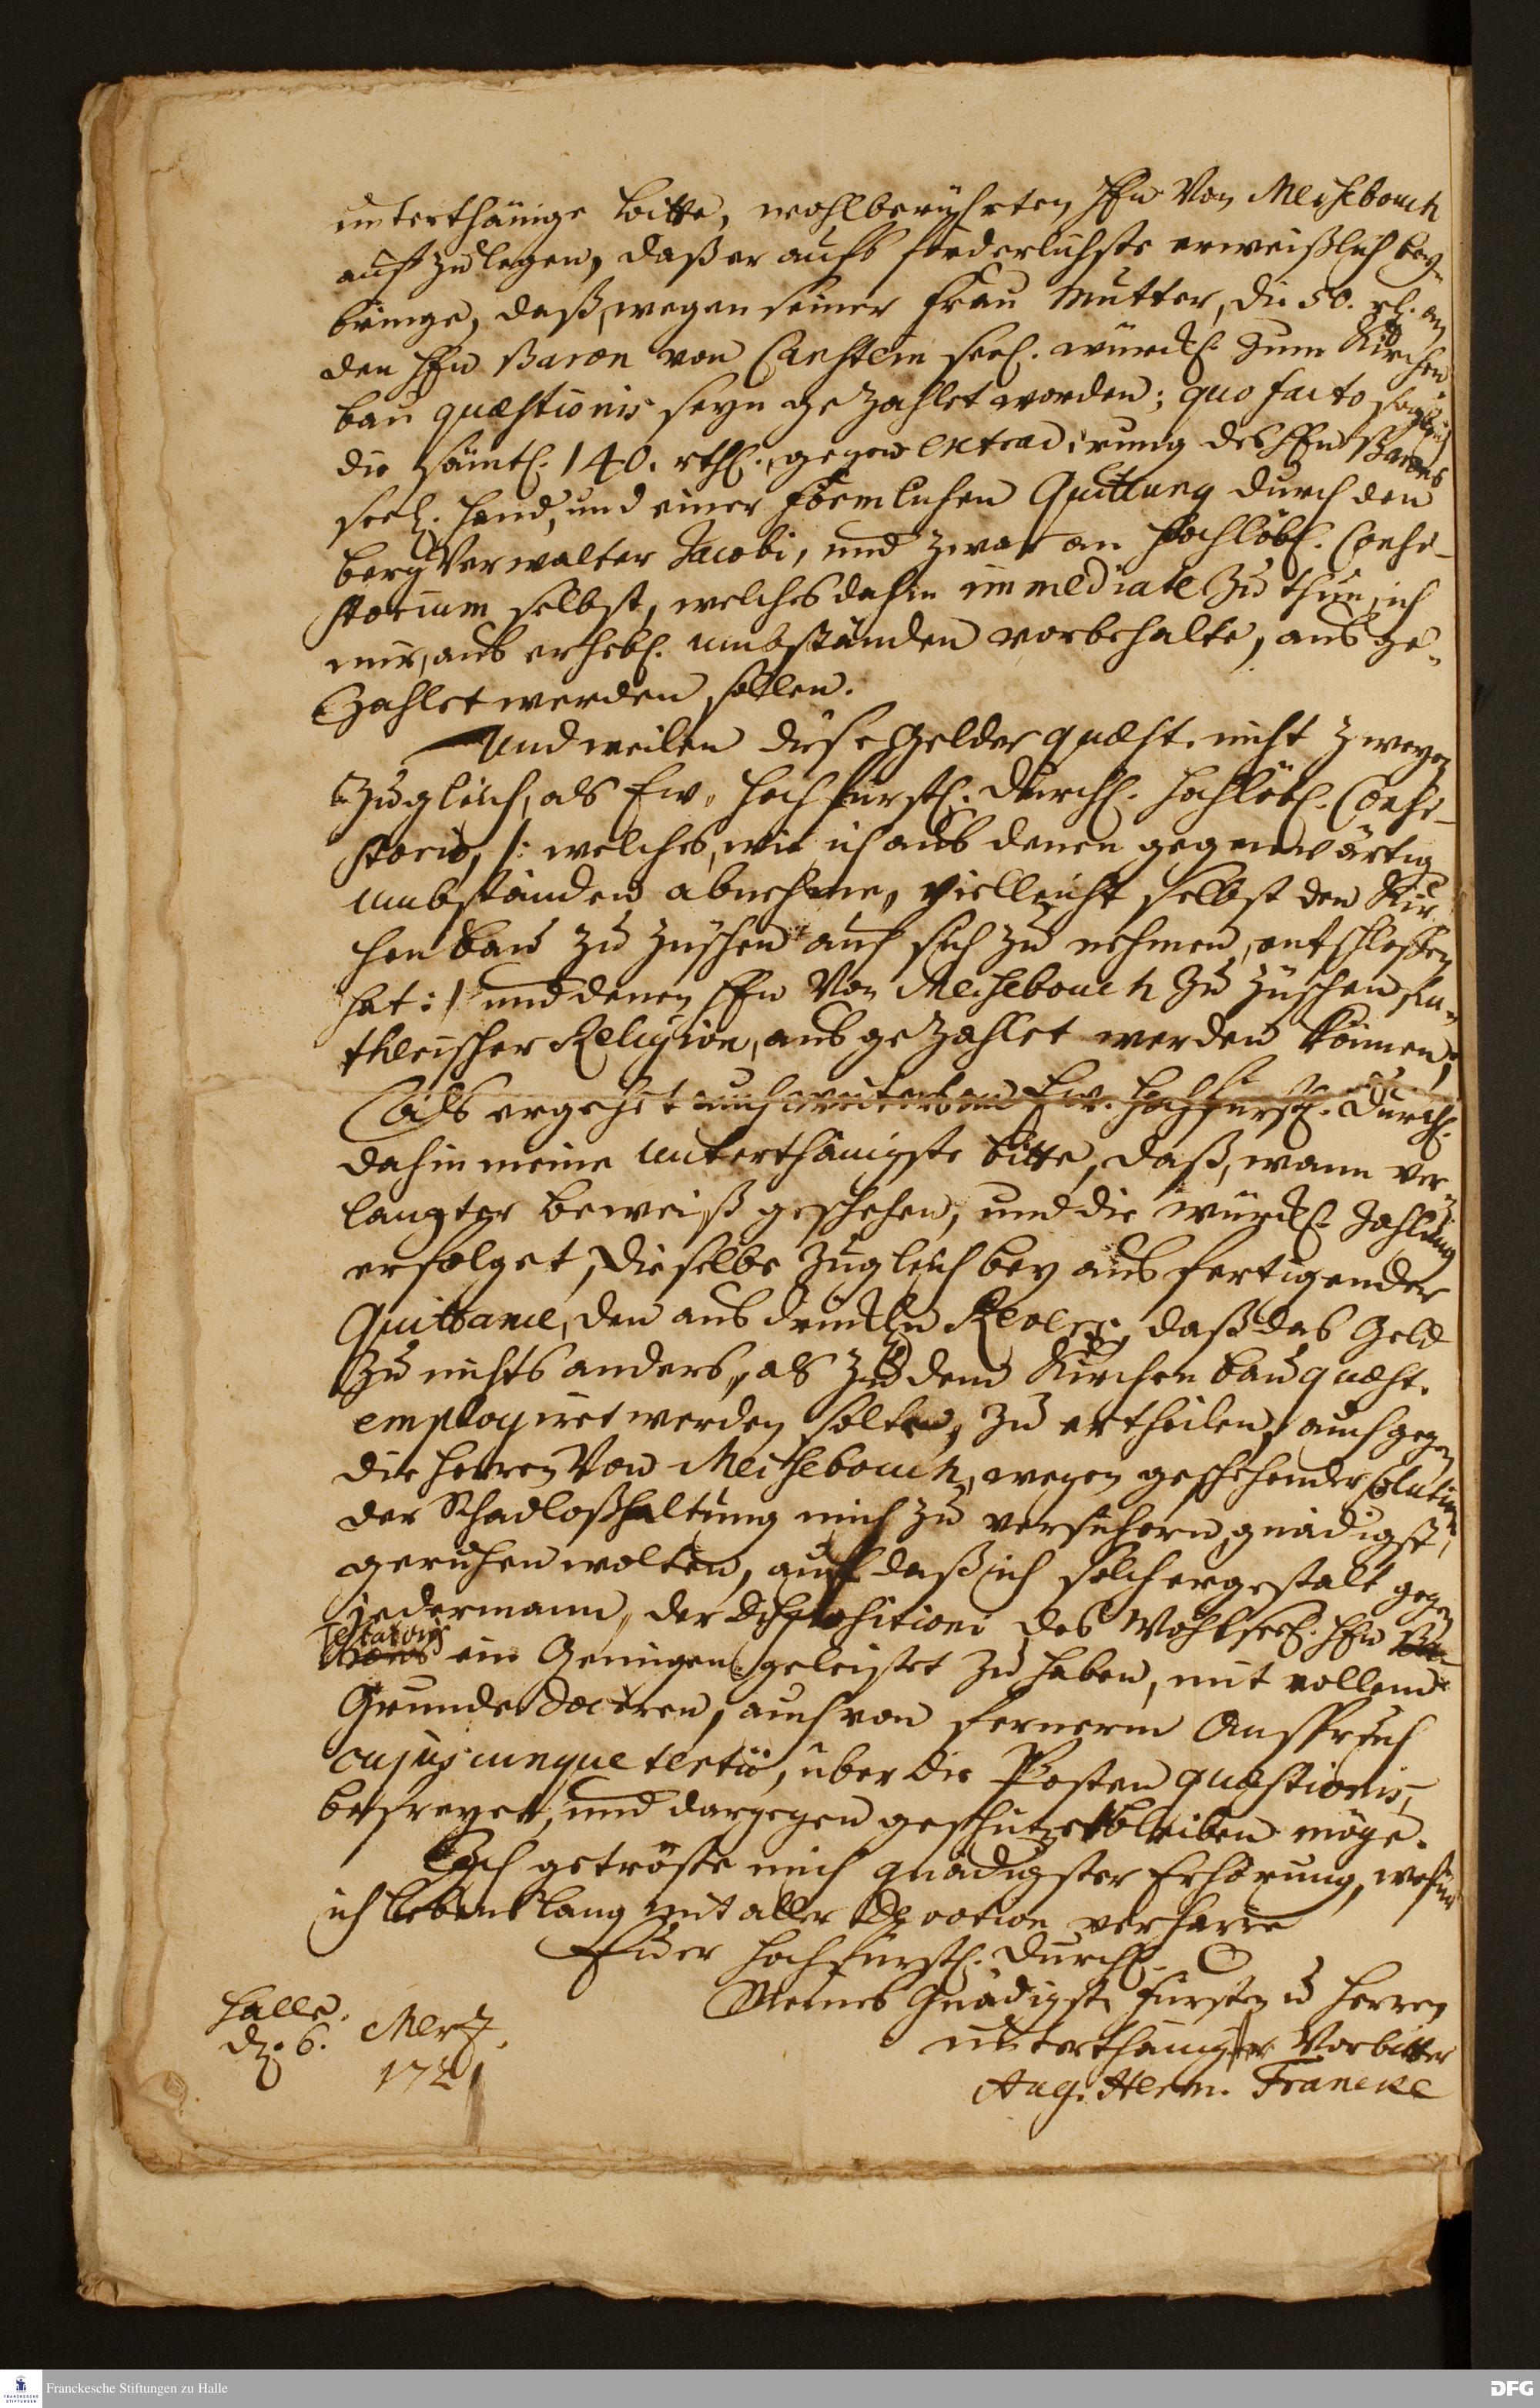 unterthänige bitte, wohlberührten Hℓn Von Meisebouch
aufzulegen, daß er aufs förderlichste erweißlich bey-
bringe, daß, wegen seiner Frau Mutter, die 50. rℓ. an
den Hℓn Baron von Canstein seel. würckl. zum Kirchen
bau quæstionis seyn gezahlet worden; quo facto sogleich
die sämtl. 140. rthl., gegen extradirung des Hℓn Barons
seel. Hand, und einer förmlichen Quittung durch den
berg Verwalter Jacobi, und zwar an Hochlöbl. Consi-
storium selbst, welches dahin immediate zu thun, ich
mir, aus erhebl. umbständen vorbehalte, aus ge-
zahlet werden sollen.
Und weilen diese Gelder quæst. nicht zweyen
zugleich, als Ew. Hochfürstl. Durchl. Hochlöbl. Consi-
storio, /: welches, wie ich aus denen gegenwärtig
umbständen abnehme, vielleicht selbst den Kir
chen bau zu Züschen auf sich zu nehmen, entschlossen
hat :/ und denen Hℓn Von Meisebouch zu Züschen Lu-
therischer Religion, aus gezahlet werden können;
Als ergehet auch weiters an Ew. Hochfürstl. Durchl.
dahin meine unterthänigste bitte, daß, wann ver-
langter beweiß geschehen, und die würckl. Zahlung
erfolget, dieselbe zugleich bey aus fertigender
Quittance, den aus drückln Revers, daß das Geld
zu nichts anders, als zu dem Kirchen bau quæst.
employiret werden solten, zu ertheilen, auch gegen
die Herren Von Meisebouch, wegen geschehender Solution
der Schadloßhaltung mich zu versichern, gnädigst,
geruhen wolten, auf daß ich solchergestalt gegen
jedermann, der Disposition des Wohlseel. Hℓn Ba-
Testatoris
rons ein Genügen geleistet zu haben, mit vollem
Grunde dociren, auch von fernerm Anspruch
cujuscunque tertii, über die Posten quæstionis,
befreyet, und dargegen geschützet bleiben möge.
Ich getröste mich gnädigster Erhörung, wofür
ich lebenslang mit aller Devotion verharre
Euer Hochfürstl. Durchl.
Meines Gnädigst. Fürsten u Herren
unterthänigster Vorbitter
Aug. Herm. Francke
Halle.
d. 6. Mertz.
1721
Franckesche Stiftungen zu Halle
DFG